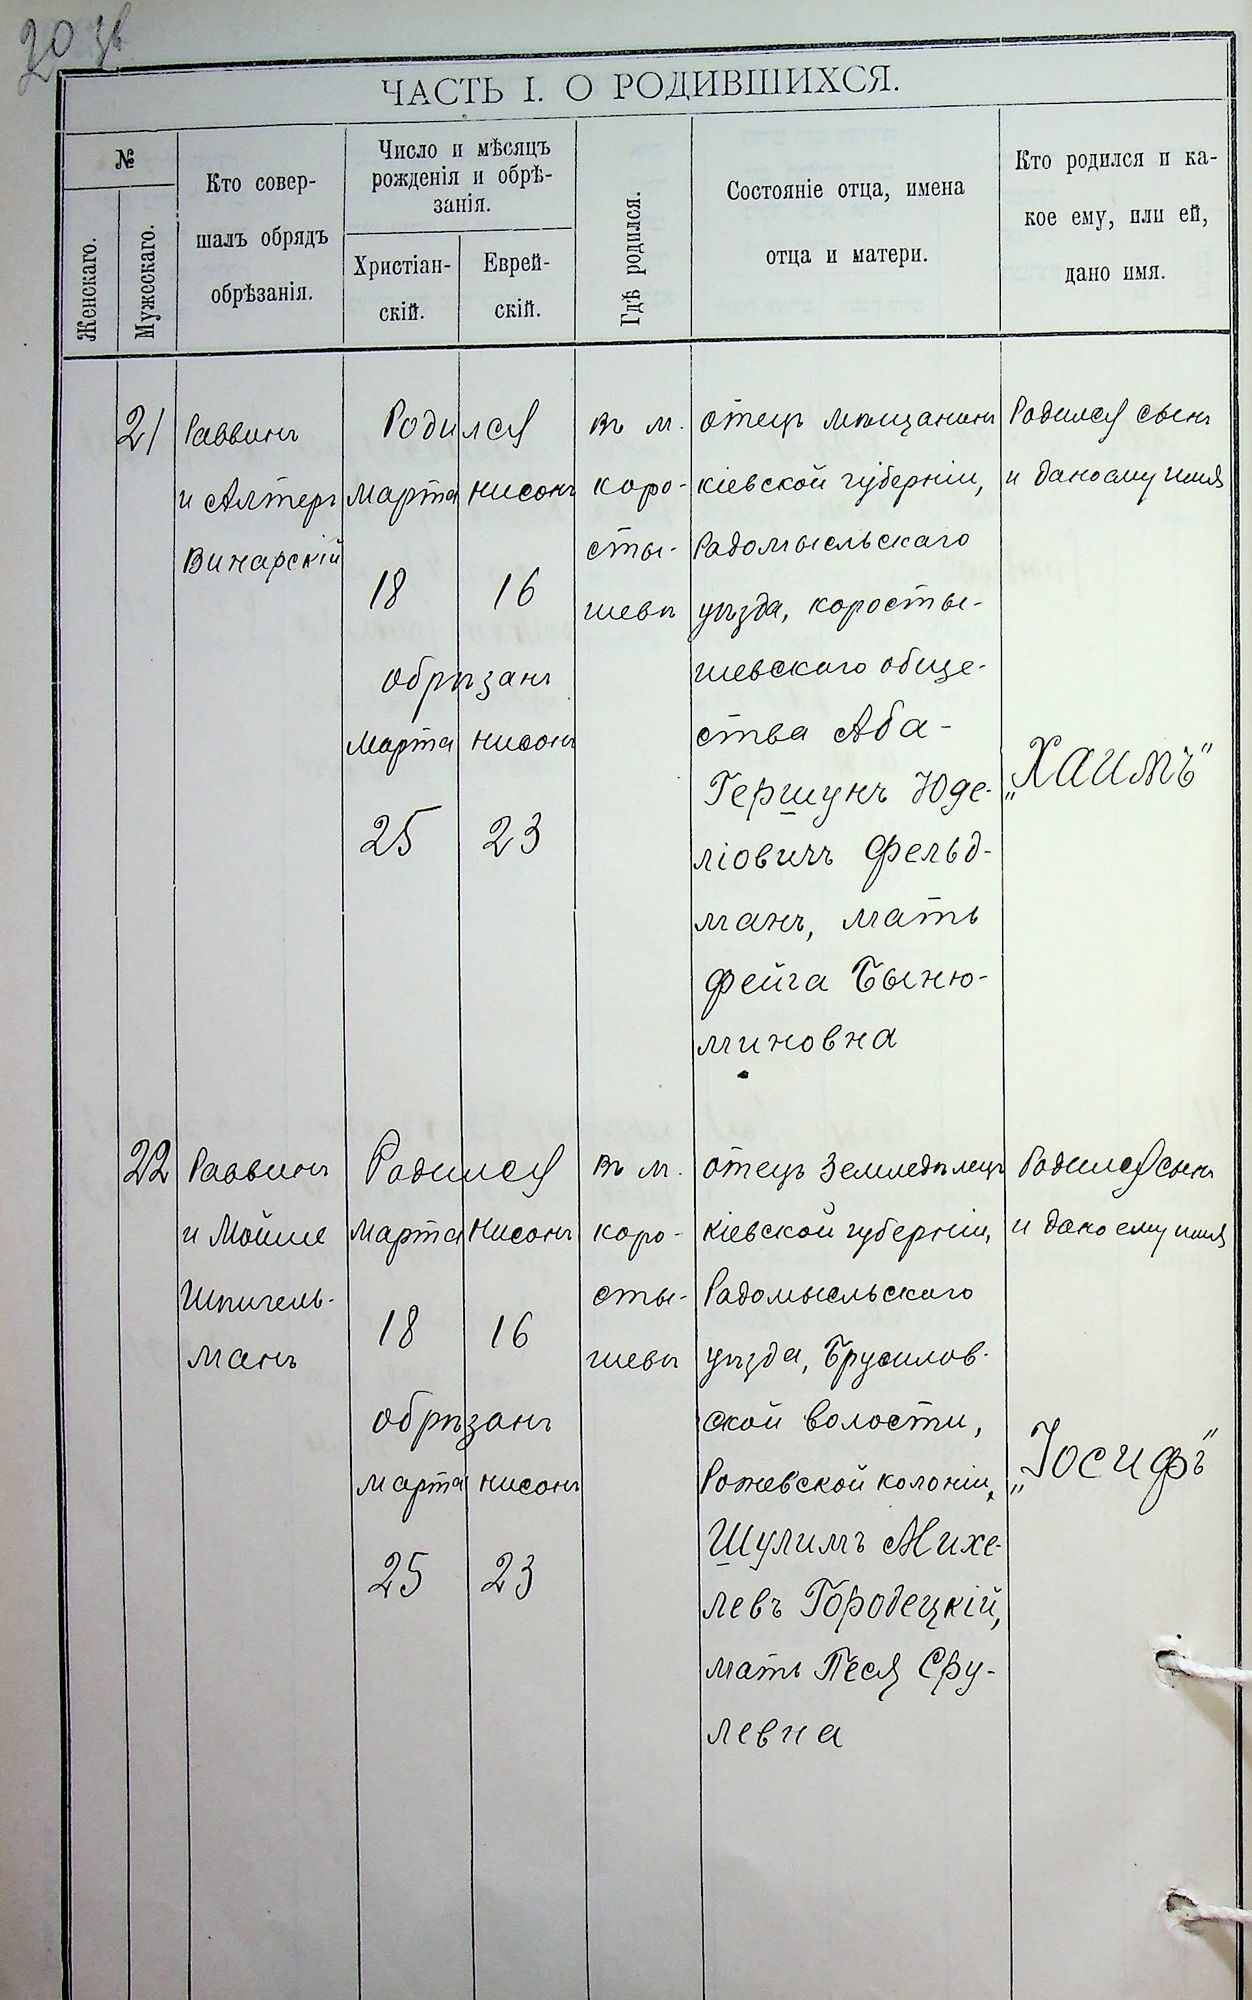 20 зв
ЧАСТЬ I. О РОДИВШИХСЯ.
№
Женскаго.
Мужескаго.
Кто совер-
шалъ обрядъ
обрѣзанія.
Число и мѣсяцъ
рожденія и обрѣ-
занія.
Христіан-
скій.
Еврей-
скій.
Гдѣ родился.
Состояніе отца, имена
отца и матери.
Кто родился и ка-
кое ему, или ей,
дано имя.
21
Раввинъ
и Алтеръ
Винарскій
Родился
Марта Нисонъ
18 16
обрѣзанъ
Марта Нисонъ
25 23
въ м.
коро-
сты-
шевѣ
отецъ мѣщанинъ
кіевской губерніи,
Радомысльскаго
уѣзда, коросты-
шевскаго обще-
ства Аба-
Гершунъ Юде-
ліовичъ Фельд-
манъ, мать
Фейга Быню-
миновна
Родился сынъ
и дано ему имя
„Хаимъ"
22
Раввинъ
и Мойше
Шпигель-
манъ
Родился
Марта Нисонъ
18 16
обрѣзанъ
Марта Нисонъ
25 23
въ м.
коро-
сты-
шевѣ
отецъ Земледѣлецъ
кіевской губерніи,
Радомысльскаго
уѣзда, Брусилов-
ской волости,
Рожевской колоніи,
Шулимъ Михе-
левъ Городецкій,
мать Песя Сру-
левна
Родился сынъ
и дано ему имя
„Іосифъ"